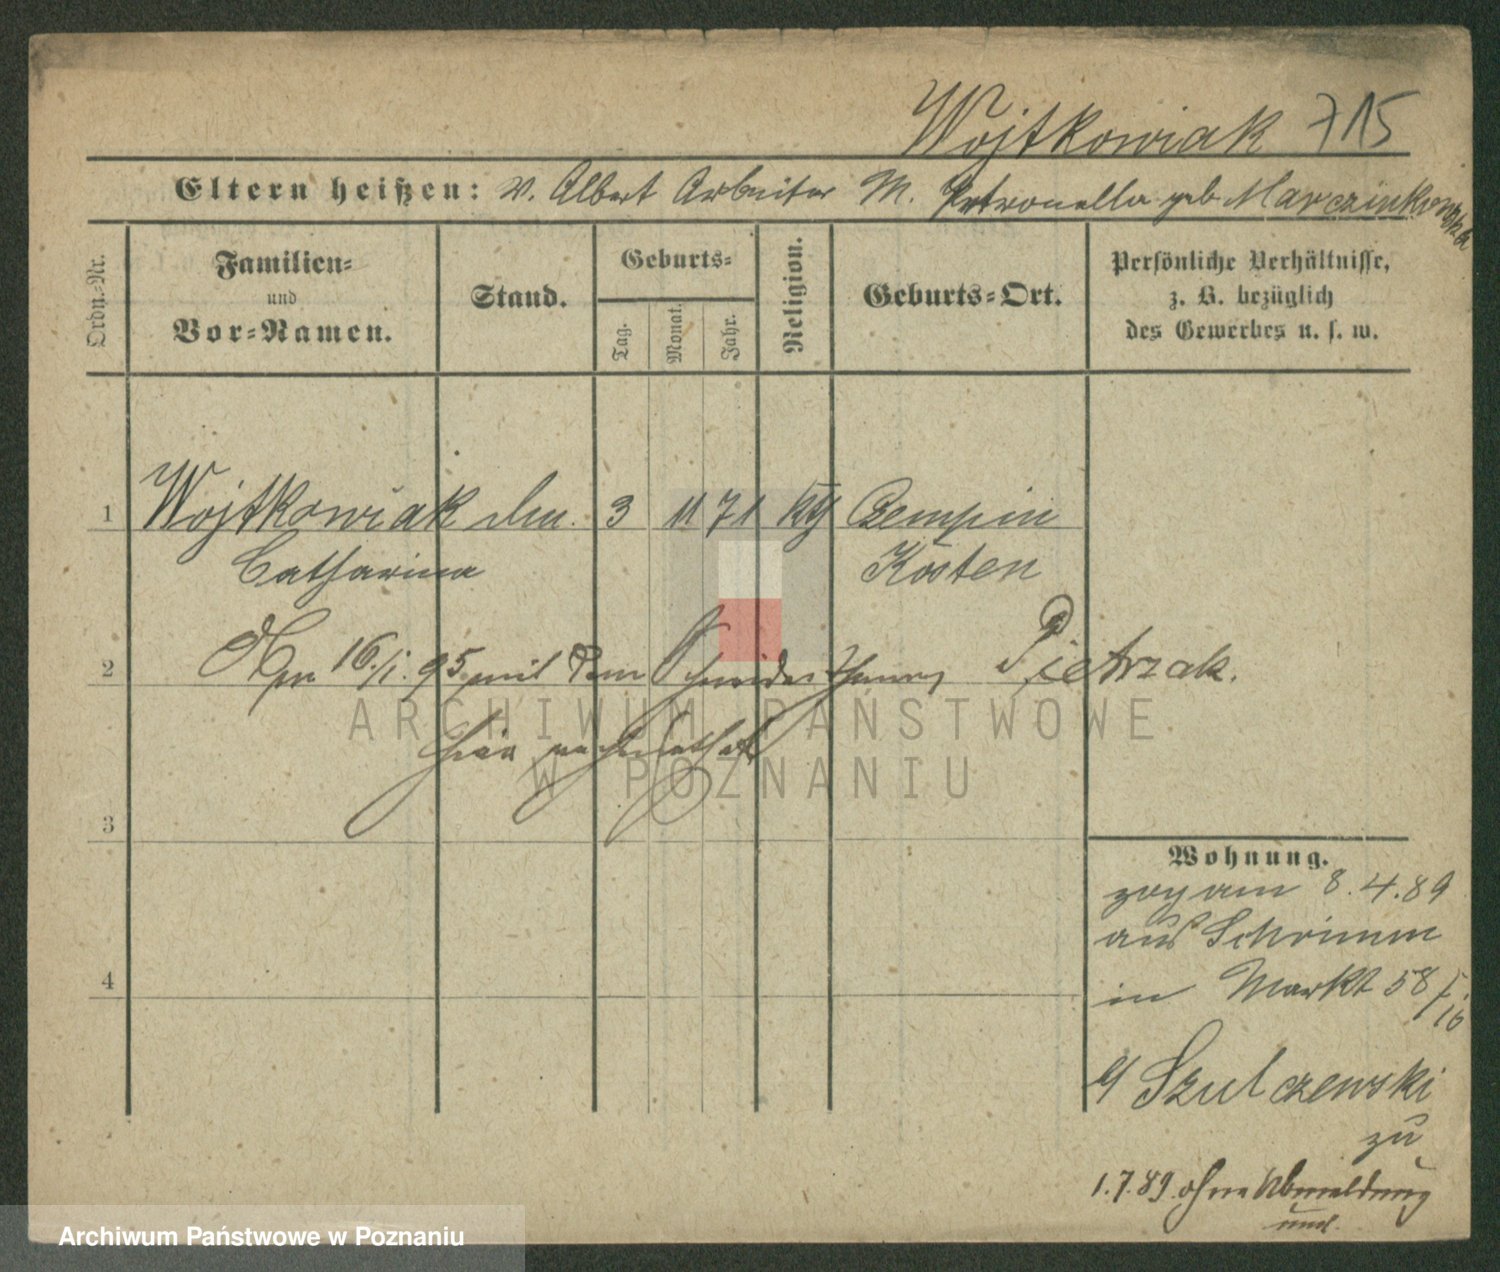 Wojtkowiak 715
Eltern heißen: V. Albert Arbeiter M. Petronella geb Marczinkowska
Ordn.-Nr.
Familien-
und
Vor-Namen.
Stand.
Geburts-
Tag.
Monat.
Jahr.
Religion.
Geburts-Ort.
Persönliche Verhältnisse,
z. B. bezüglich
des Gewerbes u. s. w.
1 Wojtkowiak 3 11 71 Czempin
Catharina Kosten
2 16./1. 95 mit dem Schneider Pietrzak.
hier verheirathet
3
4
Wohnung.
zog am 8.4.89
aus Schrimm
in Markt 58
Szulczewski
zu
1.7.89 ohne Abmeldung
und
ARCHIWUM PAŃSTWOWE
W POZNANIU
Archiwum Państwowe w Poznaniu